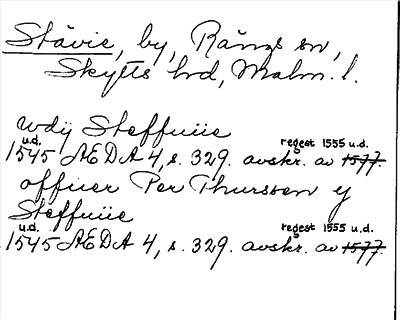 Ståvie, by, Rängs sn,
Skytts hd, Malm. l.
wdij Steffuiie
u.d. regest 1555 u.d.
1545 AEDA 4, s. 329. avskr. av 1577.
offuer Per Thurssen y
Steffuiie
u.d. regest 1555 u.d.
1545 AEDA 4, s. 329. avskr. av 1577.